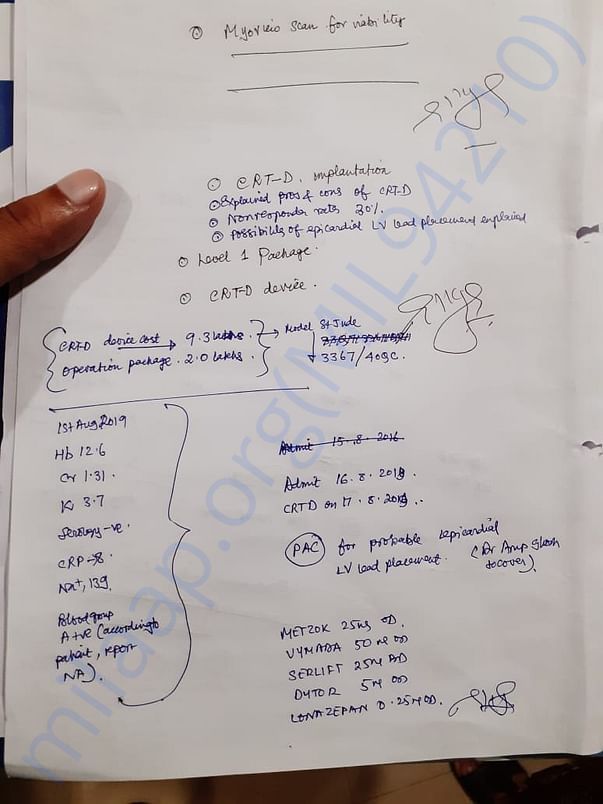 Myoview scan for viability
CRT-D. implantation
Explained pros & cons of CRT-D
Nonresponder rates 30%.
Possibility of epicardial LV lead placement explained
Level 1 Package.
CRT-D device.
CRT-D device cost → 9.3 lakhs. → Model St Jude
operation package. 2.0 lakhs 3367/40QC.
1st Aug 2019
Hb 12.6
Cr 1.31.
K 3.7
Serology -ve.
CRP → 8.
Na+, 139.
Blood group
A+ve (according to
patient, report
NA).
Admit 15.8.2016
Admit 16.8.2019.
CRTD on 17.8.2019.
PAC for probable epicardial
LV lead placement. (Dr to cover).
METZOK 25mg OD.
VYMADA 50mg OD
SERLIFT 25mg
DYTOR 5mg OD
LONAZEPAN 0.25mg OD.
milaap.org(MIL94210)